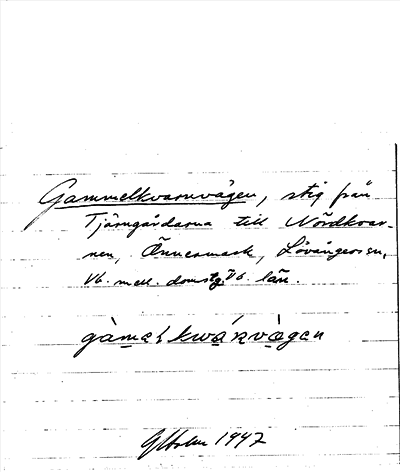 Gammelkvarnvägen, stig från
Tjärngårdarna till Nördkvar-
nen, Önnesmark, Lövångers sn,
Vb. mell. domsg. Vb. län.
gàmelkwáṇvä̀gen
GHolm 1947